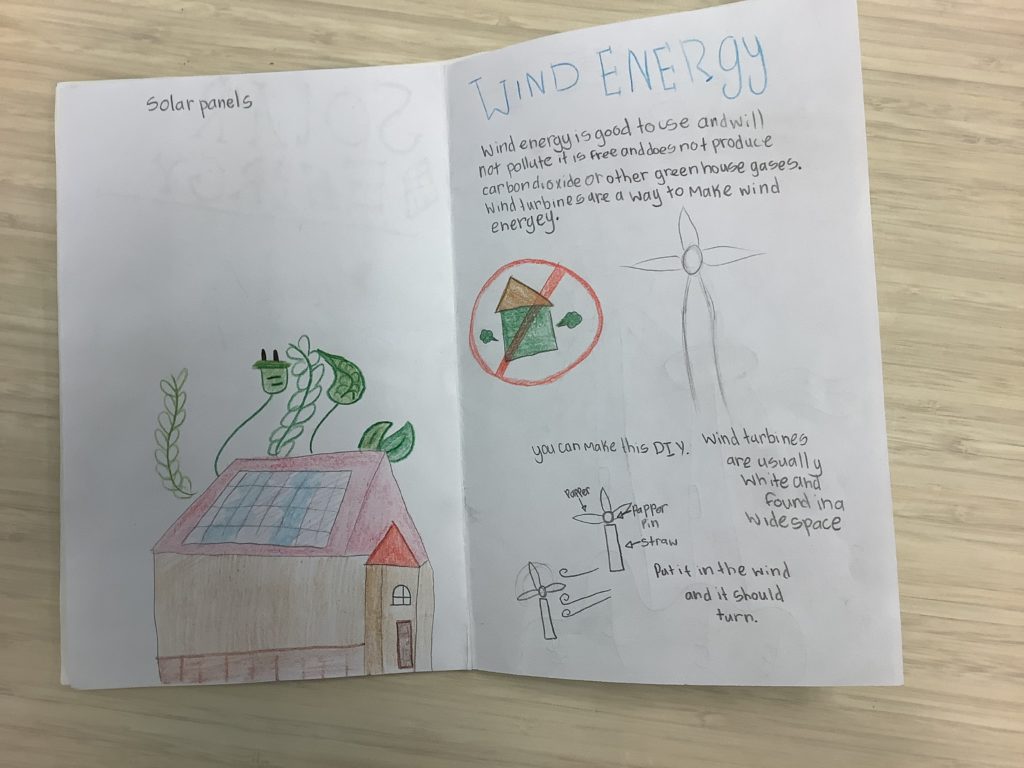 Solar panels
WIND ENERGY
Wind energy is good to use and will
not pollute it is free and does not produce
carbon dioxide or other greenhouse gases.
Wind turbines are a way to make wind
energey.
you can make this DIY.
Wind turbines
are usually
white and
found in a
wide space
Papper
Papper
Pin
straw
Put it in the wind
and it should
turn.